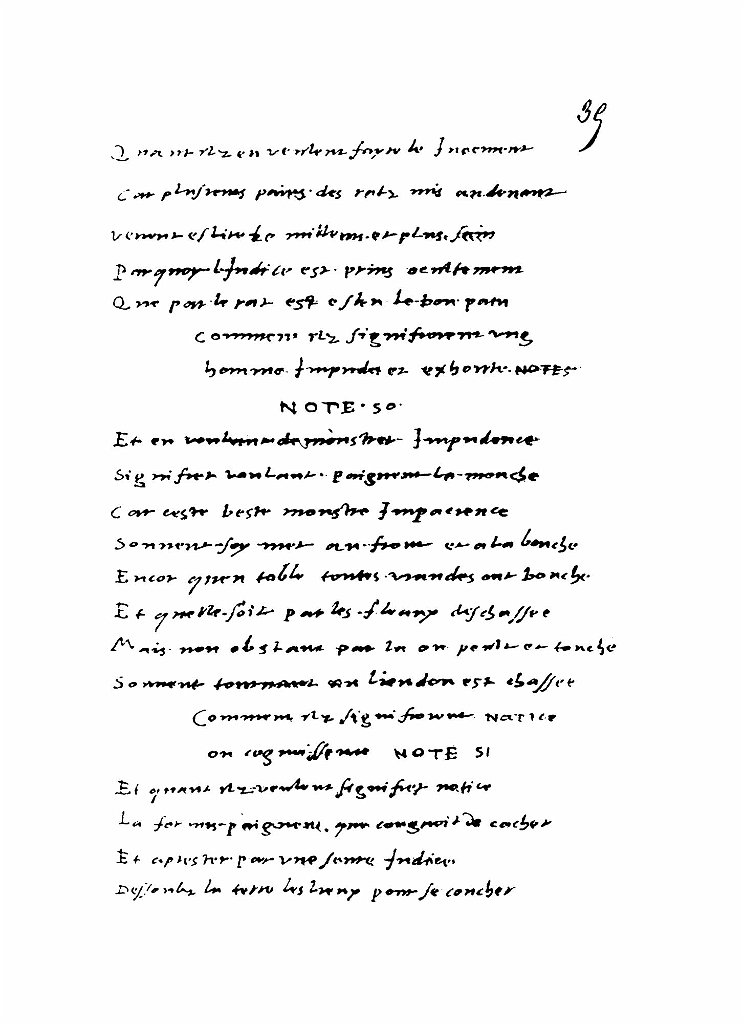 39
Quant ilz en veulent fayre le Jugement
Car plusieurs pains des ratz mis au devant
Venent eslire le milleur et plus sain
Parquoy l'Indice est prins ocultement
Que par le rat est eslu le bon pain
Comment ilz signifioient ung
homme Impudet et exhorte NOTES
NOTE 50
Et en voulant demonstrer Impudence
Signifier voulant paignent la mouche
Car ceste beste monstre Impacience
Souvent soy met au front et a la bouche
Encor qu'en table toutes viandes ont bouche
Et quelle soit par les fleaux deschassee
Mais non obstant par la on peult et touche
Souvent tournant au lieu don est chassee
Comment ilz signifioient NOTICE
ou cognoissence NOTE 51
Et quant ilz veulent signifier notice
La formis paignent, que congnoit de cacher
Et aprester par une seure Indice
Dessoubz la terre les lieux pour se coucher